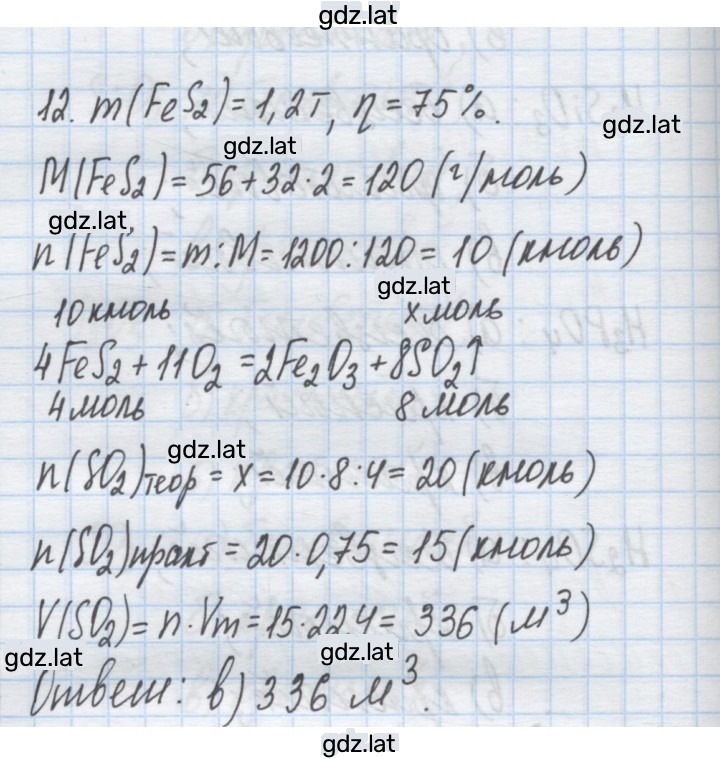 gdz.lat
12. m(FeS₂)=1,2т, η=75%.
gdz.lat
gdz.lat
M(FeS₂)=56+32·2=120 (г/моль)
gdz.lat
n(FeS₂)=m:M=1200:120=10 (кмоль)
gdz.lat
10кмоль x моль
4FeS₂+11O₂=2Fe₂O₃+8SO₂↑
4моль 8 моль
gdz.lat
n(SO₂)теор=x=10·8:4=20 (кмоль)
n(SO₂)практ=20·0,75=15(кмоль)
V(SO₂)=n·Vm=15·22,4=336 (м³)
gdz.lat gdz.lat
Ответ: в) 336 м³.
gdz.lat